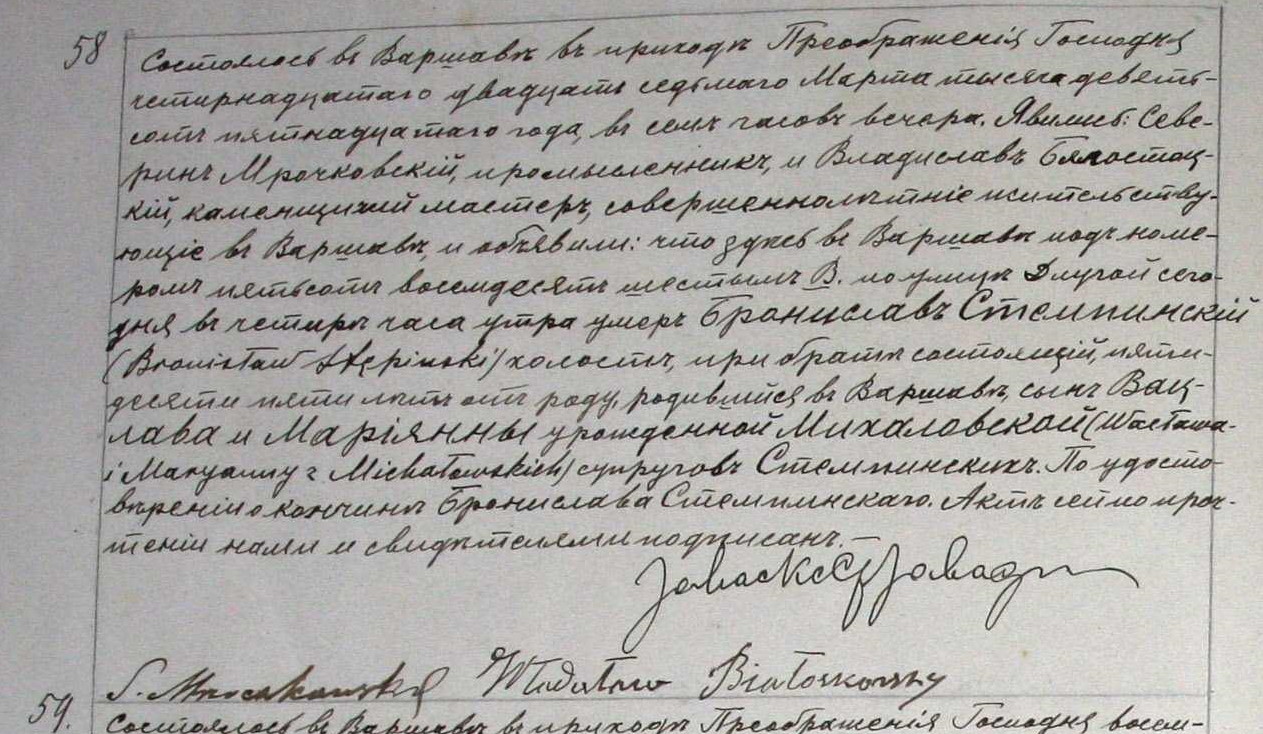 58
Состоялось въ Варшавѣ въ приходѣ Преображенія Господня
четырнадцатаго двадцать седьмаго Марта тысяча девять-
сотъ пятнадцатаго года, въ семь часовъ вечера. Явились: Севе-
ринъ Мрочковскій, промысленникъ, и Владиславъ Бялостоц-
кій, каменщичій мастеръ, совершеннолѣтніе жительству-
ющіе въ Варшавѣ, и объявили: что здѣсь въ Варшавѣ подъ номе-
ромъ пятьсотъ восемдесятъ шестымъ В. по улицѣ Длугой сего-
дня въ четыре часа утра умеръ Брониславъ Стемпинскій
(Bronisław Stępinski) холостъ, при братѣ состоящій, пяти-
десяти пяти лѣтъ отъ роду, родившійся въ Варшавѣ, сынъ Вац-
лава и Маріянны урожденной Михаловской (Wacława
i Maryanny z Michałowskich) супруговъ Стемпинскихъ. По удосто-
вѣреніи о кончинѣ Бронислава Стемпинскаго. Актъ сей по проч-
теніи нами и свидѣтелями подписанъ.–
S. Mroczkowski Władysław
59.
Состоялось въ Варшавѣ въ приходѣ Преображенія Господня восем-